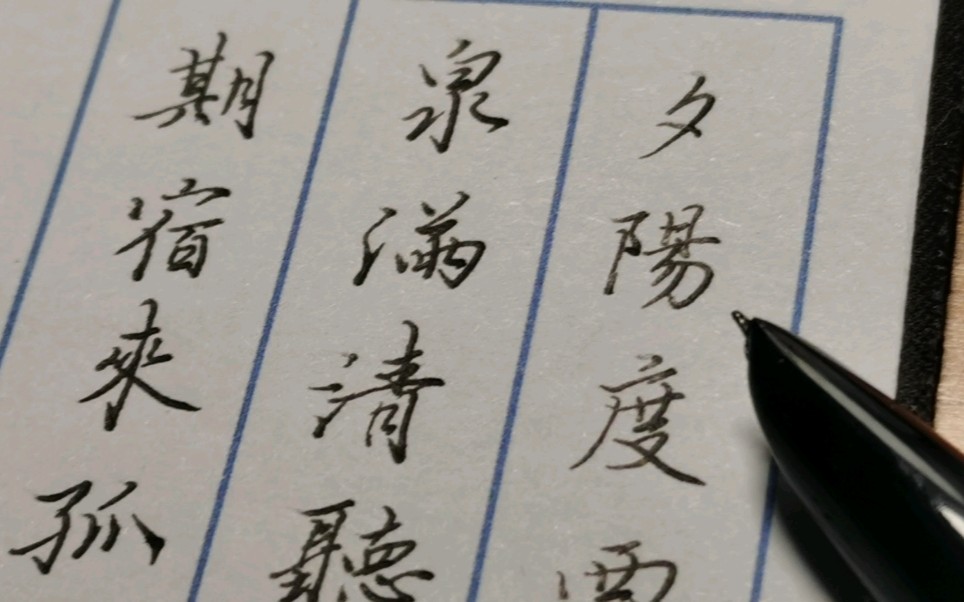 夕陽度西
泉滿清聽
期宿來孤